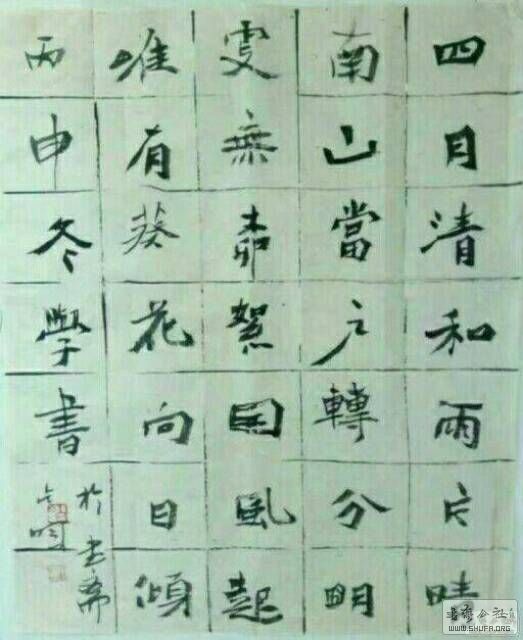 四月清和雨乍晴
南山當户轉分明
更無柳絮因風起
惟有葵花向日傾
丙申冬學書
於書斋
WWW.SHUFA.ORG